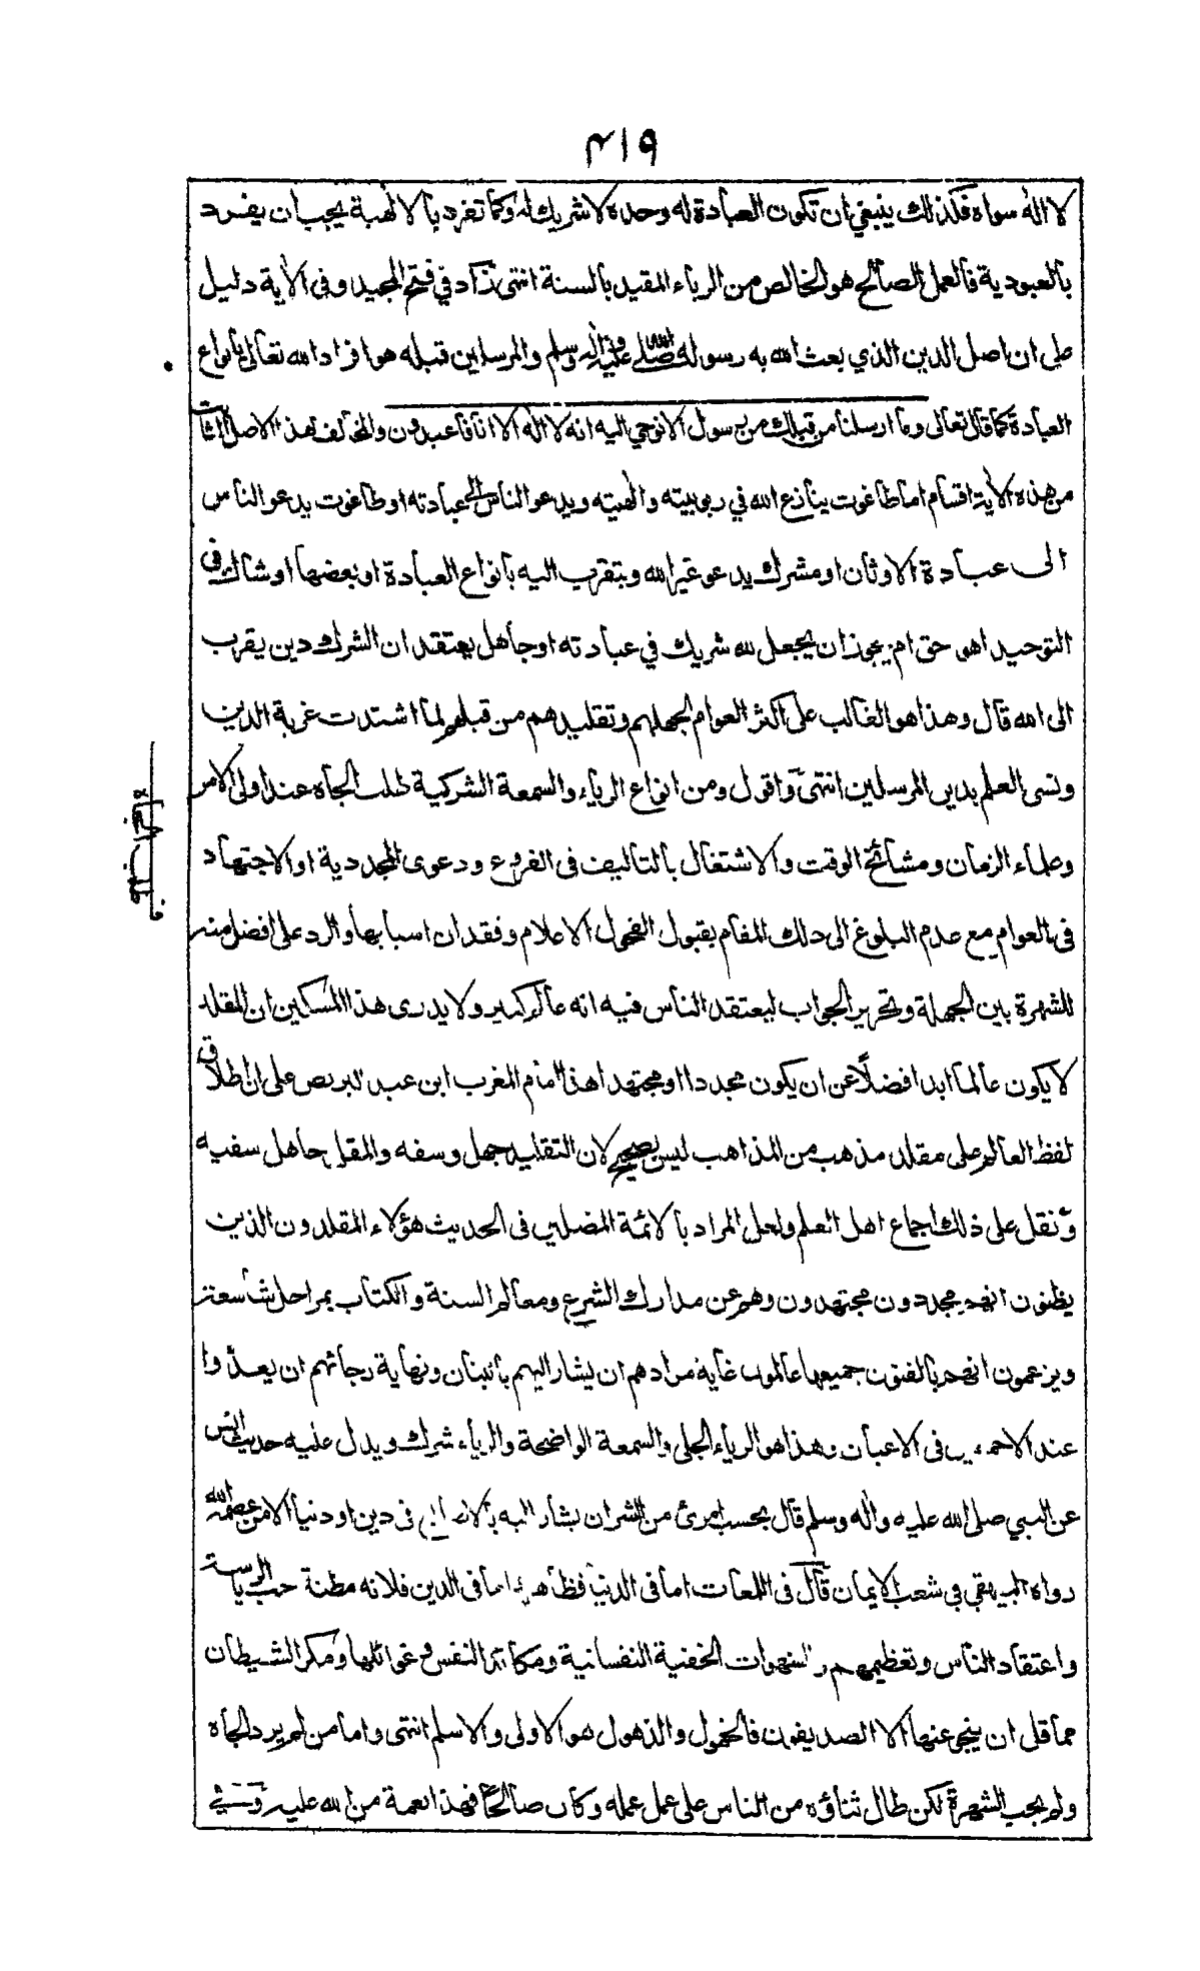 ٤١٩
لا اله سواه فكذلك ينبغي ان تكون العبادة له وحده لا شريك له وكما تفرد بالالهية يجب ان يفرد
بالعبودية فالعمل الصالح هو الخالص من الرياء المقيد بالسنة انتهى زاد في فتح المجيد وفى الآية دليل
على ان اصل الدين الذي بعث الله به رسوله صلى الله عليه وآله وسلم والمرسلين قبله هو افراد الله تعالى بانواع
العبادة كما قال تعالى وما ارسلنا من قبلك من رسول الا نوحي اليه انه لا اله الا انا فاعبدون والمخالف لهذا الاصل الثابت
من هذه الآية اقسام اما طاغوت ينازع الله في ربوبيته والهيته ويدعو الناس الى عبادته او طاغوت يدعو الناس
الى عبادة الاوثان او مشرك يدعو غير الله ويتقرب اليه بانواع العبادة او بعضها او شاك فى
التوحيد اهو حق ام يجوز ان يجعل لله شريك في عبادته او جاهل يعتقد ان الشرك دين يقرب
الى الله قال وهذا هو الغالب على اكثر العوام لجهلهم وتقليدهم من قبلهم لما اشتدت غربة الدين
ونسي العلم بدين المرسلين انتهى واقول ومن انواع الرياء والسمعة الشركية طلب الجاه عند اولى الامر
وعلماء الزمان ومشائخ الوقت والاشتغال بالتاليف فى الفروع ودعوى المجددية او الاجتهاد
فى العوام مع عدم البلوغ الى ذلك المقام بقبول الفحول الاعلام وفقدان اسبابها والرد على افضل منه
للشهرة بين الجهلة وتحرير الجواب ليعتقد الناس فيه انه عالم كبير ولا يدرى هذا المسكين ان المقلد
لا يكون عالما ابدا فضلًا عن ان يكون مجددا او مجتهدا هذا امام المغرب ابن عبد البر نص على ان اطلاق
لفظ العالم على مقلد مذهب من المذاهب ليس بصحيح لان التقليد جهل وسفه والمقلد جاهل سفيه
ونقل على ذلك اجماع اهل العلم ولعل المراد بالائمة المضلين فى الحديث هؤلاء المقلدون الذين
يظنون انهم مجددون مجتهدون وهم عن مدارك الشرع ومعالم السنة والكتاب بمراحل شاسعة
ويزعمون انهم بالفنون جميعها عالمون غاية مرادهم ان يشار اليهم بالبنان ونهاية رجائهم ان يعدّوا
عند الاحمقين فى الاعيان وهذا هو الرياء الجلى والسمعة الواضحة والرياء شرك ويدل عليه حديث انس
عن النبي صلى الله عليه واله وسلم قال بحسب امرئ من الشر ان يشار اليه بالاصابع فى دين او دنيا الا من عصمه الله
رواه البيهقي في شعب الايمان قال فى اللمعات اما فى الدنيا فظاهر واما فى الدين فلانه مظنة حب الرياسة
واعتقاد الناس وتعظيمهم والشهوات الخفية النفسانية ومكائد النفس وغوائلها ومكر الشيطان
مما قل ان ينجى عنها الا الصديقون فالخمول والذهول هو الاولى والاسلم انتهى واما من لم يرد الجاه
ولم يحب الشهرة لكن طال ثناؤه من الناس على عمل عمله وكان صالحًا فهذا نعمة من الله عليه وفى
ف طلب الجاه